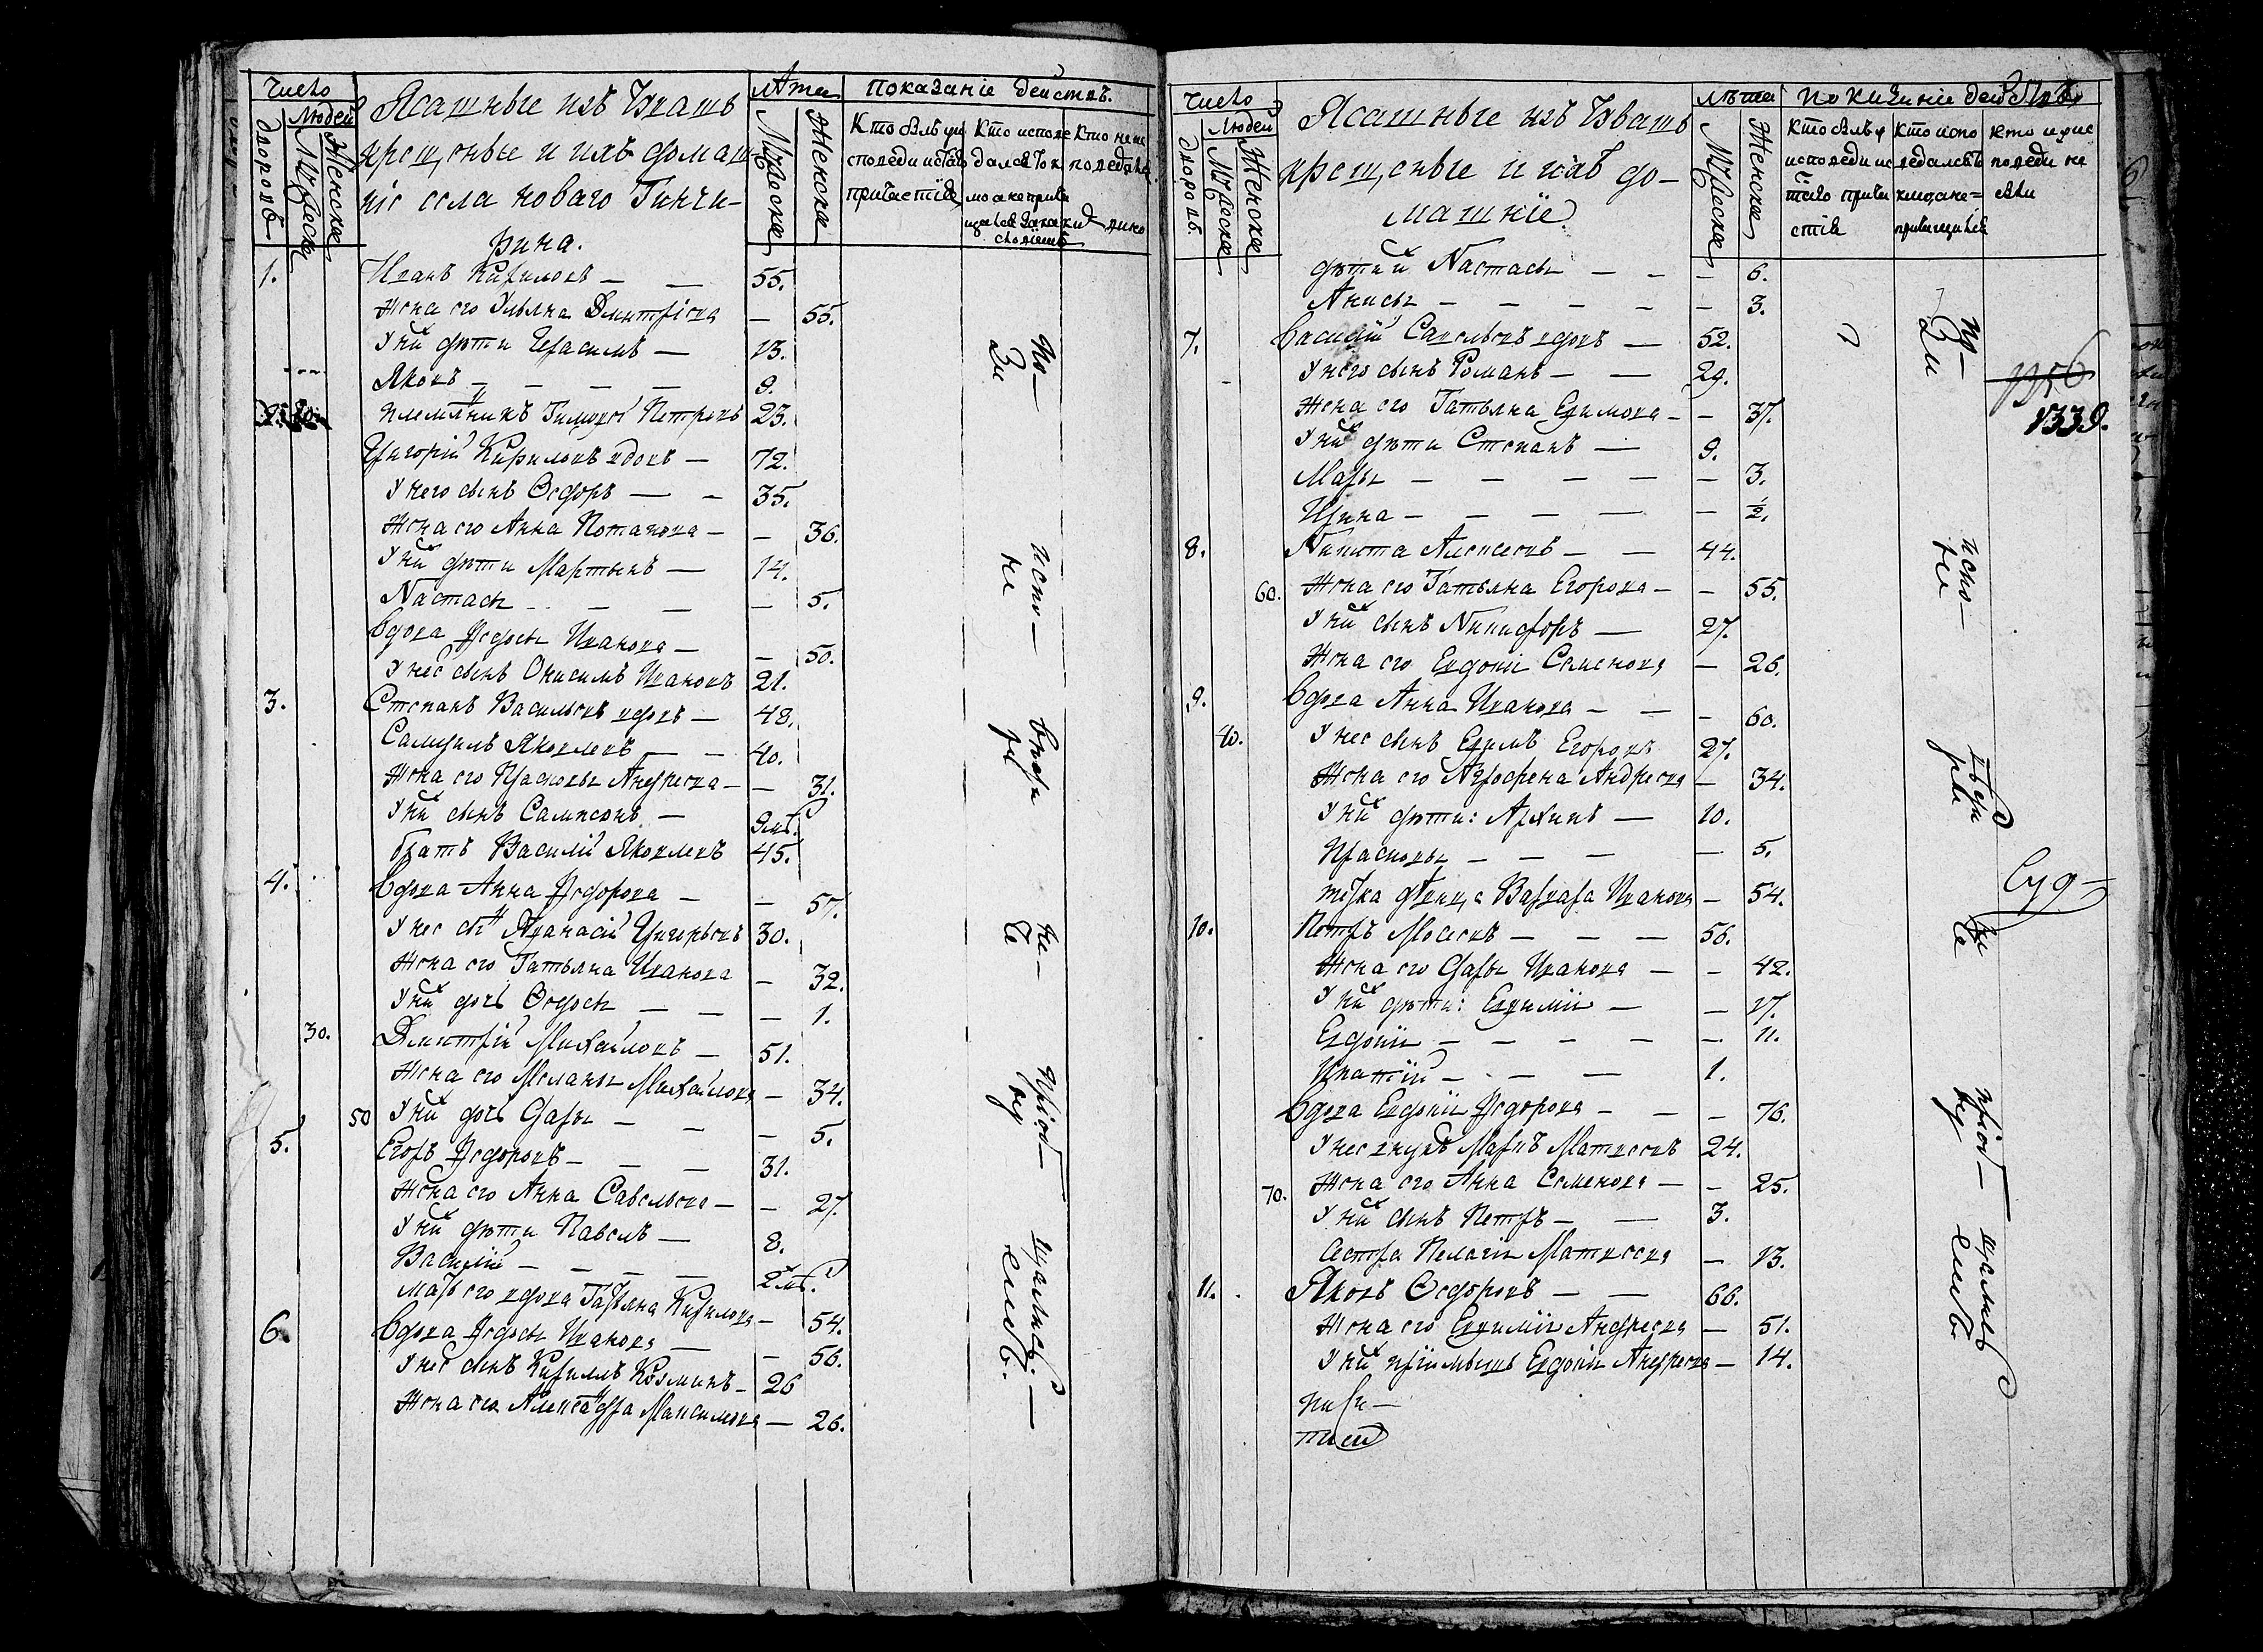 Число
Людей
дворовъ
Мужеска
Женска
Ясашные изъ Чувашъ
крещеные и ихъ домаш-
ніе села новаго Тинчи-
рина.
Лѣта
Мужеска
Женска
Показаніе действъ.
Кто былъ у и
споведи и стаго
причастія
Кто испове
дался ток
мо а не прича
щался за ка ким
Кто не ис
поведался
1. Иванъ Кириловъ — — 55.
Жена его Ульяна Дмитріева — 55.
У них дѣти Герасимъ — 13.
Яковъ — — — — 9.
племянникъ Тимофей Петровъ 23.
Григорій Кириловъ вдовъ — 72.
У него сынъ Ѳедоръ — — 35.
Жена его Анна Потапова — — 36.
У них дѣти Мартынъ — 14.
Настасья — — — — 5.
Вдова Федосья Иванова — — 50.
У нее сынъ Онисимъ Ивановъ 21.
3. Степанъ Васильевъ вдовъ — 48.
Самуилъ Яковлевъ — — 40.
Жена его Прасковья Андреева — — 31.
У них сынъ Сампсонъ — 9 мѣ.
братъ Василий Яковлевъ 45.
4. Вдова Анна Федорова — — 57.
У нее сынъ Афанасій Григорьевъ 30.
Жена его Татьяна Иванова — 32.
У них дочь Ѳедосья — — — 1.
30. Дмитрій Михайловъ — 51.
Жена его Меланья Михайлова — 34.
50 У них дочь Дарья — — — 5.
5. Егоръ Федоровъ — — — 31.
Жена его Анна Савельева — — 27.
У них дѣти Павелъ — 8.
Василій — — — — 2 мѣ.
Мать его вдова Татьяна Кирилова — 54.
6. Вдова Федосья Иванова — — 56.
У нее сынъ Кирилъ Козминъ — 26
Жена его Александра Максимова — 26.
Число
Людей
дворовъ.
Мужеска
Женска
Ясашные изъ Чувашъ
крещеные и ихъ до-
машніе
лѣта
Мужеска
Женска
показаніе действъ
Кто былъ у
исповеди и с
таго прича
стія
Кто испо
ведался
токмо, а не =
причащался
кто у ис
поведи не
былъ
дѣтей Настасья — — — 6.
Анисья — — — — — 3.
7. Василій Савельевъ вдовъ — 52.
У него сынъ Романъ — — 29.
Жена его Татьяна Ефимова — — 37.
У них дѣти Степанъ — 9.
Марья — — — — — 3.
Ирина — — — — — ½.
8. Никита Алексеевъ — — 44.
60. Жена его Татьяна Егорова — — 55.
У них сынъ Никифоръ — 27.
Жена его Евдокія Семенова — 26.
9. Вдова Анна Иванова — — — 60.
40. У нее сынъ Ефимъ Егоровъ 27.
Жена его Аграфена Андреева — 34.
У них дѣти: Архипъ — 10.
Прасковья — — — — 5.
тетка девица Варвара Иванова — 54.
10. Петръ Моисеевъ — — — 56.
Жена его Дарья Иванова — — 42.
У них дѣти: Евфимія — — 17.
Евдокія — — — — — 11.
Игнатій — — — 1.
Вдова Евдокія Федорова — — — 76.
У нее внукъ Маркъ Матвеевъ 24.
70. Жена его Анна Семенова — — 25.
У них сынъ Петръ — — 3.
Сестра Пелагія Матвеева — 13.
11. Яковъ Ѳедоровъ — — 66.
Жена его Евфимія Андреева — 51.
У них пріемышъ Евдокія Андреева — 14.
1339.